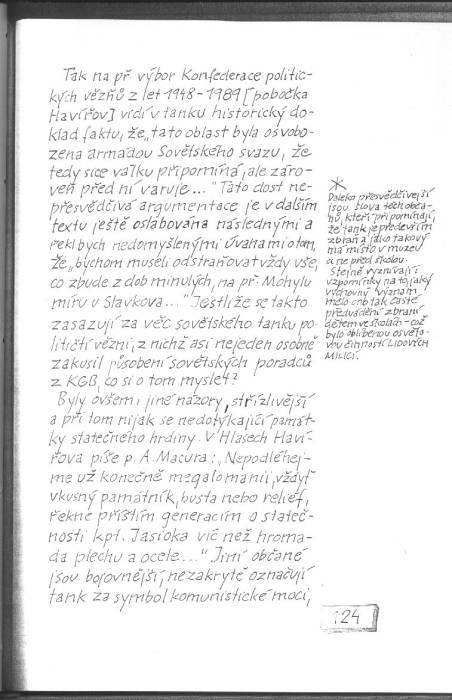 Tak na př. výbor Konfederace politic-
kých vězňů z let 1948-1989 [pobočka
Havířov] vidí v tanku historický do-
klad faktu, že „tato oblast byla osvobo-
zena armadou Sovětského svazu, že
tedy sice valku připomíná, ale záro-
veň před ní varuje..." Tato dost ne-
přesvědčivá argumentace je v dalším
textu ještě oslabována následnými a
řekl bych nedomyšlenými úvahami o tom,
že „bychom museli odstraňovat vždy vše,
co zbude z dob minulých, na př. Mohylu
míru u Slavkova..." Jestliže se takto
zasazují za věc sovětského tanku po-
litičtí vězni, z nichž asi nejeden osobně
zakusil působení sovětských poradců
z KGB, co si o tom myslet?
Byly ovšem i jiné názory, střízlivější
a při tom nijak se nedotýkající památ-
ky statečného hrdiny. V Hlasech Haví-
řova píše p. A. Macura: „Nepodléhej-
me už konečně megalomanii, vždyť
vkusný památník, busta nebo relief,
řekne příštím generacím o stateč-
nosti kpt. Jasioka víc než hroma-
da plechu a ocele..." Jiní občané
jsou bojovnější, nezakrytě označují
tank za symbol komunistické moci,
*
Daleko přesvědčivější
jsou slova těch obča-
nů, kteří připomínají,
že tank je především
zbraň a jako takový
má místo v muzeu
a ne před školou.
Stejně vyznívají
vzpomínky na to, jaký
výchovný význam
mělo onb tak časté
předvádění zbraní
dětem ve školách - což
bylo oblíbenou osvěto-
vou činností LIDOVÝCH
MILICÍ.
124